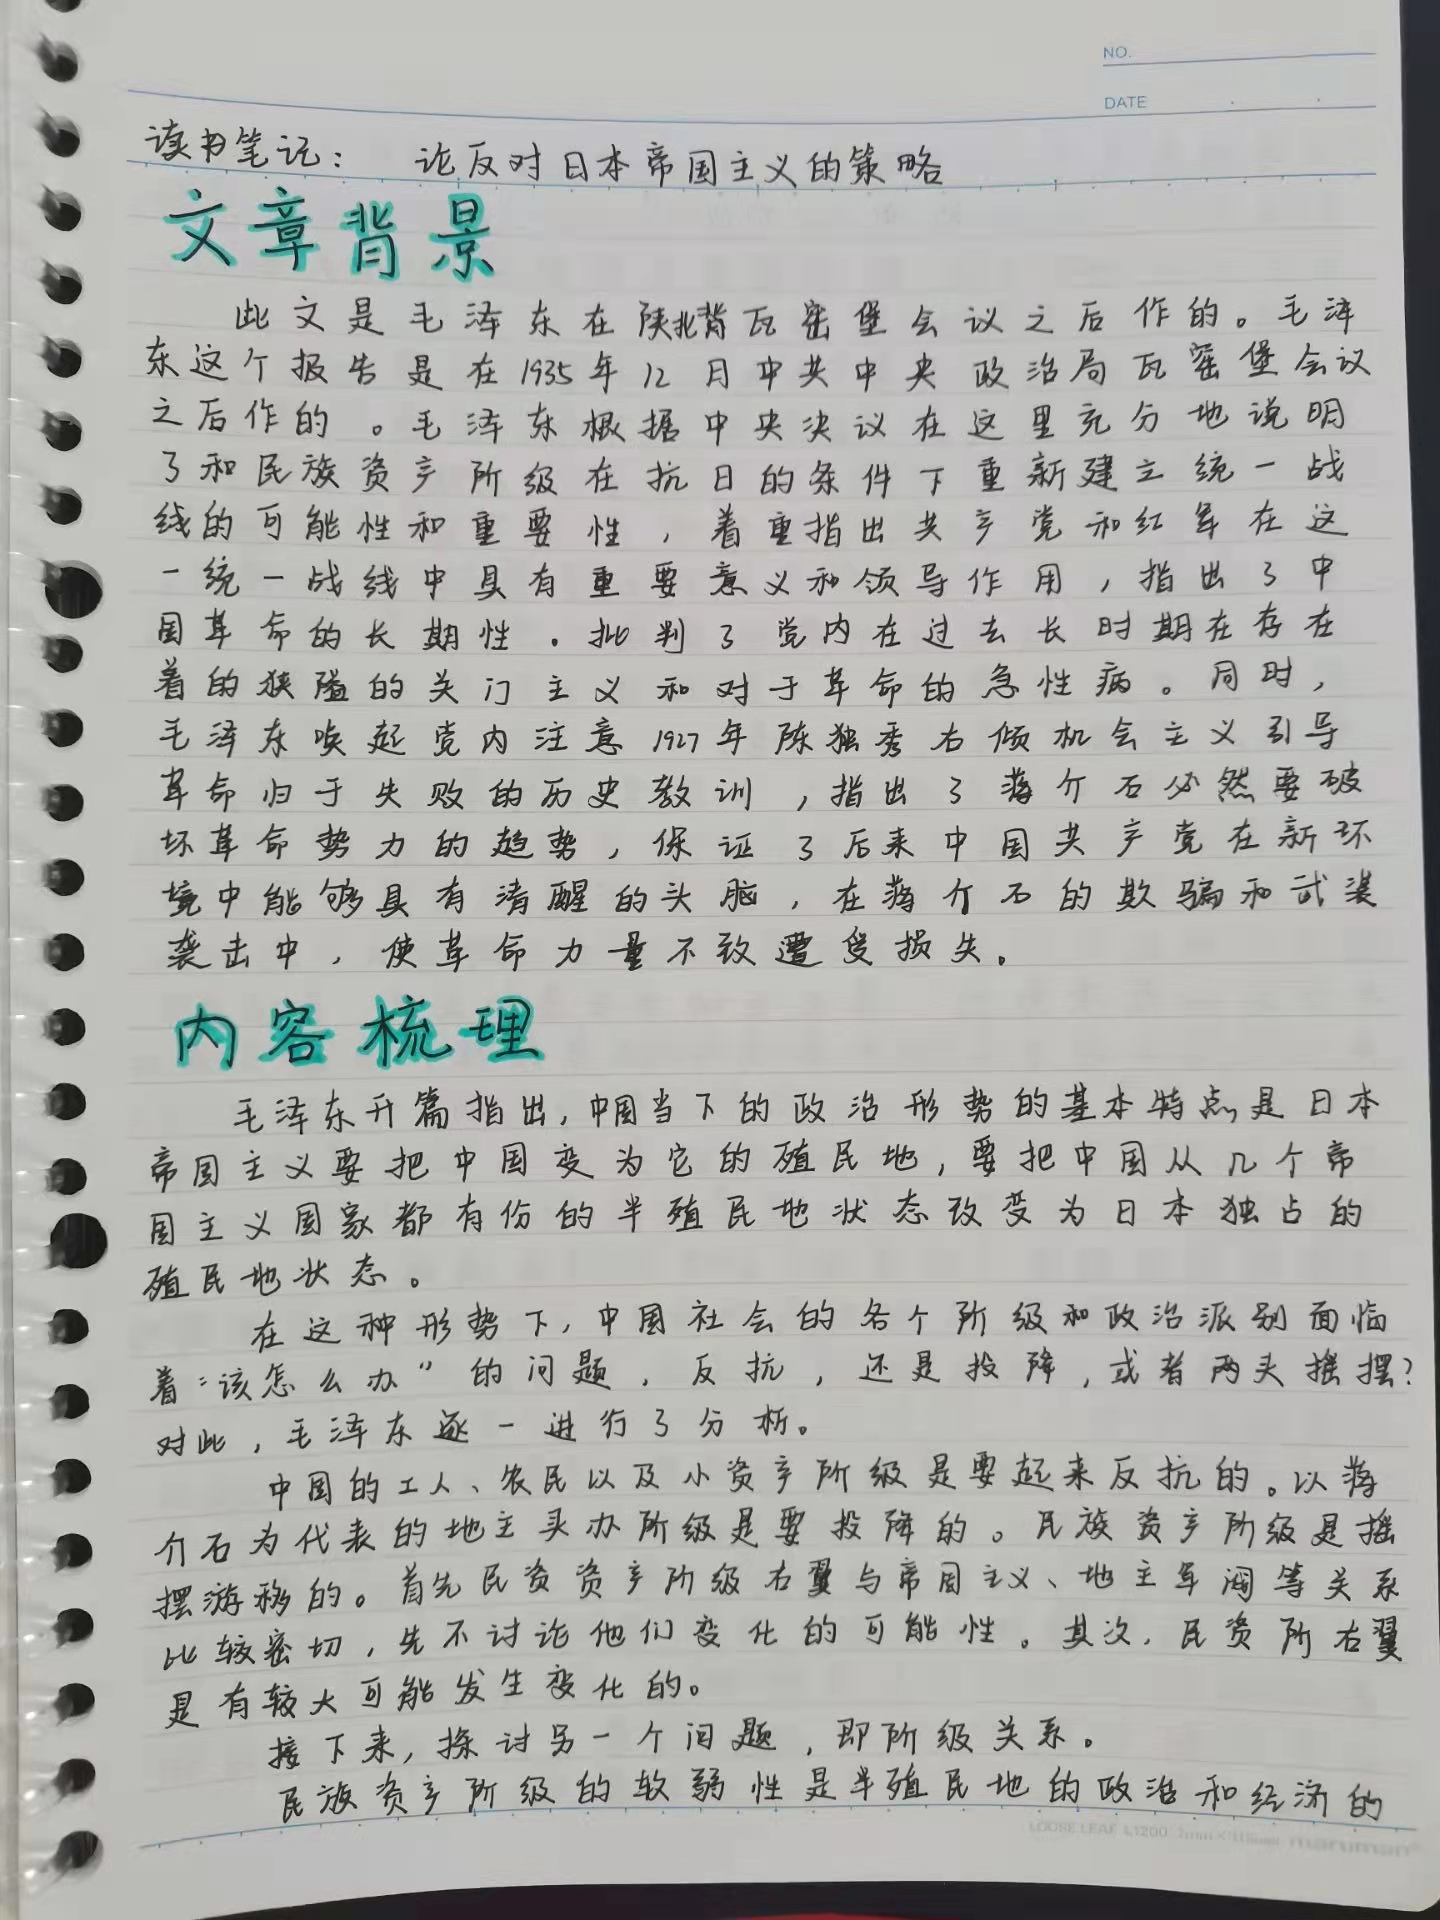 NO.
DATE
读书笔记： 论反对日本帝国主义的策略
文章背景
此文是毛泽东在陕北背瓦窑堡会议之后作的。毛泽
东这个报告是在1935年12月中共中央政治局瓦窑堡会议
之后作的。毛泽东根据中央决议在这里充分地说明
了和民族资产阶级在抗日的条件下重新建立统一战
线的可能性和重要性，着重指出共产党和红军在这
一统一战线中具有重要意义和领导作用，指出了中
国革命的长期性。批判了党内在过去长时期在存在
着的狭隘的关门主义和对于革命的急性病。同时，
毛泽东唤起党内注意1927年陈独秀右倾机会主义引导
革命归于失败的历史教训，指出了蒋介石必然要破
坏革命势力的趋势，保证了后来中国共产党在新环
境中能够具有清醒的头脑，在蒋介石的欺骗和武装
袭击中，使革命力量不致遭受损失。
内容梳理
毛泽东开篇指出，中国当下的政治形势的基本特点是日本
帝国主义要把中国变为它的殖民地，要把中国从几个帝
国主义国家都有份的半殖民地状态改变为日本独占的
殖民地状态。
在这种形势下，中国社会的各个阶级和政治派别面临
着“该怎么办”的问题，反抗，还是投降，或者两头摇摆？
对此，毛泽东逐一进行了分析。
中国的工人、农民以及小资产阶级是要起来反抗的。以蒋
介石为代表的地主买办阶级是要投降的。民族资产阶级是摇
摆游移的。首先民资资产阶级右翼与帝国主义、地主军阀等关系
比较密切，先不讨论他们变化的可能性。其次，民资阶右翼
是有较大可能发生变化的。
接下来，探讨另一个问题，即阶级关系。
民族资产阶级的软弱性是半殖民地的政治和经济的
LOOSE LEAF L1200 7mm maruman